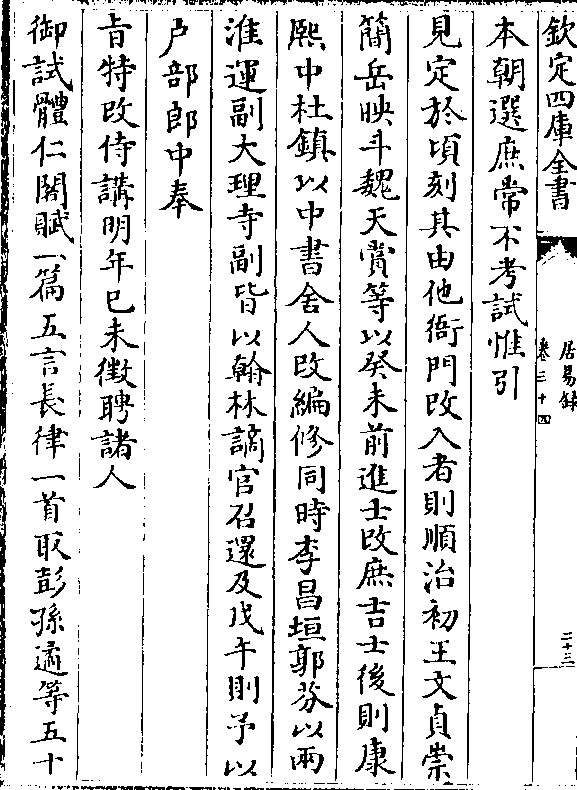 欽定四庫全書
居易錄
卷三十四
二十三
本朝選庶常不考試惟引
見定於頃刻其由他衙門改入者則順治初王文貞崇
簡岳映斗魏天賞等以癸未前進士改庶吉士後則康
熙中杜鎮以中書舍人改編修同時李昌垣郭芬以兩
淮運副大理寺副皆以翰林謫官召還及戊午則予以
户部郎中奉
旨特改侍講明年己未徵聘諸人
御試體仁閣賦一篇五言長律一首取彭孫遹等五十